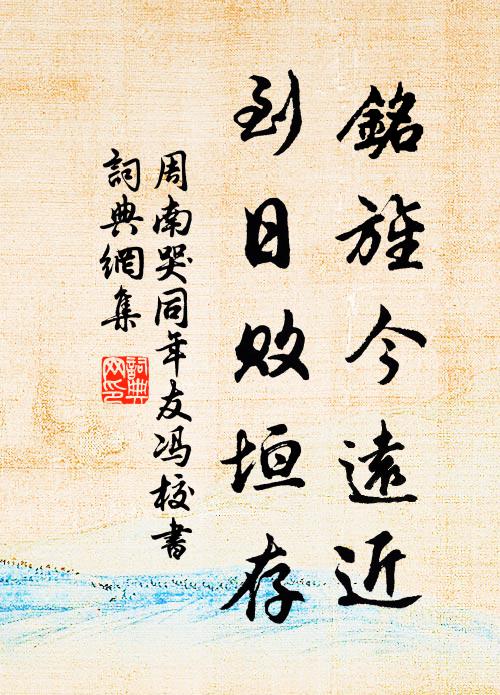 銘旌今遠近
到日敗垣存
周南哭同年友馮校書
詞典網集
詞典
网印